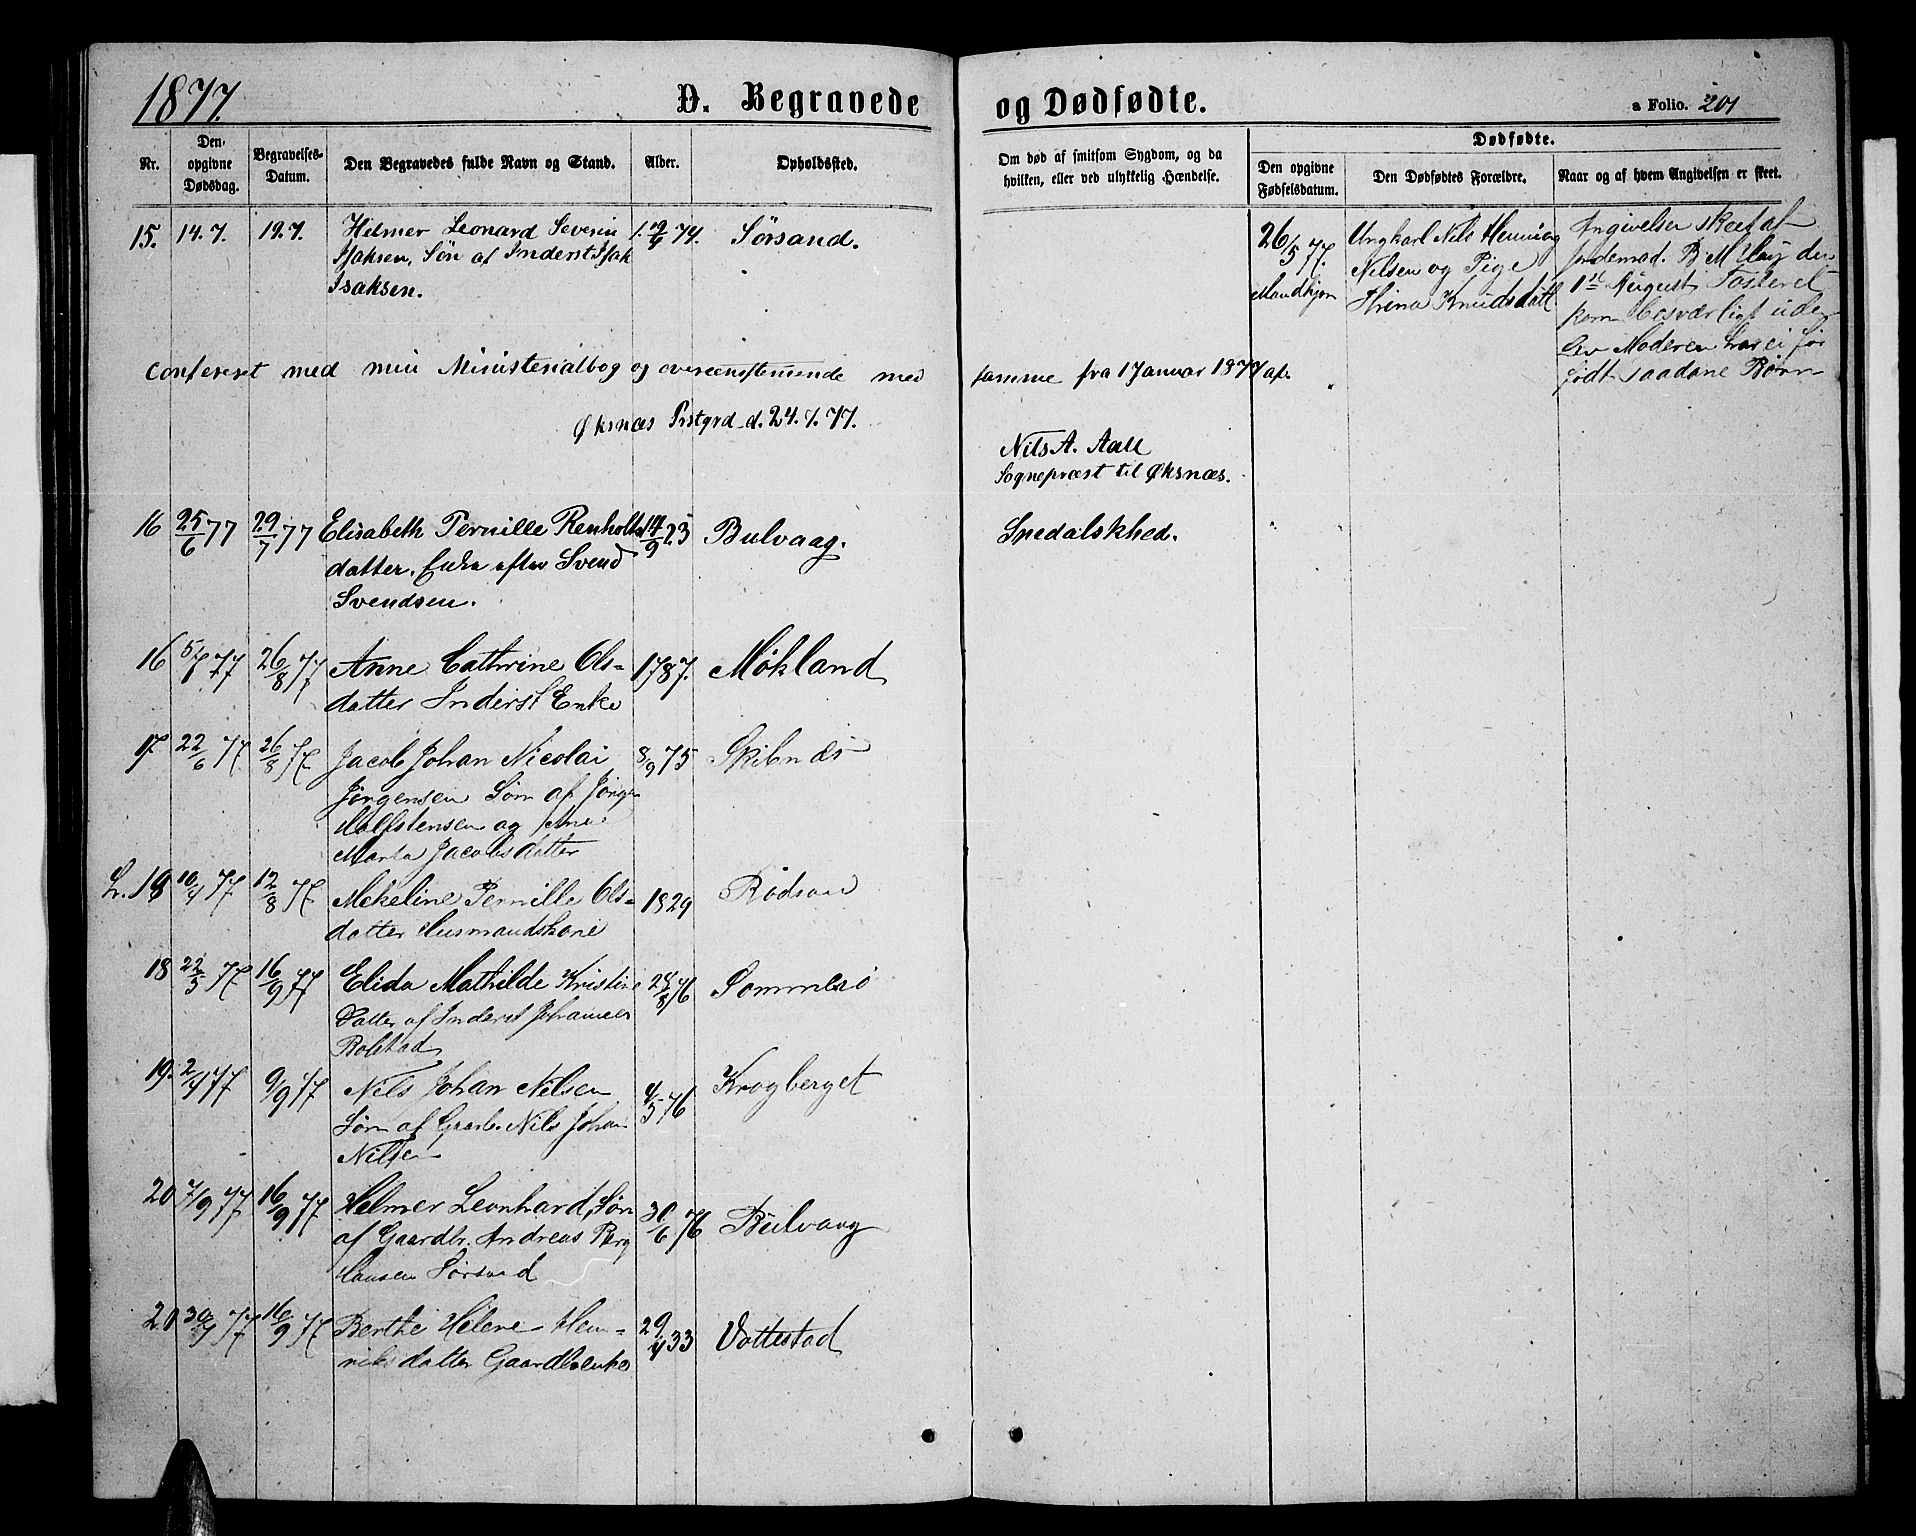 1877.
D. Begravede og Dødfødte.
a Folio. 201
Nr.
Den opgivne Dødsdag.
Begravelses-Datum.
Den Begravedes fulde Navn og Stand.
Alder.
Opholdsted.
Om død af smitsom Sygdom, og da hvilken, eller ved ulykkelig Hændelse.
Dødfødte.
Den opgivne Fødselsdatum.
Den Dødfødtes Forældre.
Naar og af hvem Angivelsen er skeet.
15. 14.7. 19.7. Helmer Leonard Severin 74. Sørsand.
Isaksen, Søn af Inderst Isak
Isaksen.
26/5 77. Ungkarl Nils Henning
Nilsen og Pige
Mandkjøn
Knudsdatt
Angivelsen skeet af
Jordemod. B M
1ste August Fosteret
kom besværligt uden
Liv Moderen har ei før
født saadane Børn
Confereret med min Ministerialbog og overensstemmende med samme fra 1 Januar 1877 af.
Øksnæs Prstgrd d. 24.7.77.
Nils A. Aall
Sognepræst til Øksnæs.
16 25/6 77 29/7 77 Elisabeth Pernille Renholts 14/9 23 Bulvaag. Spedalskhed.
datter. Enke efter Svend
Svendsen.
16 5/7 77 26/8 77 Anne Cathrine Ols- 1787. Møkland
datter Inderst Enke
17. 22/6 77 26/8 77. Jacob Johan Nicolai 8/9 75 Skibnæs
Jørgensen Søn af Jørgen
og Ane
Marta Jacobsdatter
L. 18 10/4 77 12/8 77 Mekeline Pernille Ols- 1829
datter Husmandskone
18 22/5 77 16/9 77 Elida Mathilde Kristine 24/8 76 Sommerø
Datter af Inderst Johannes
Rolstad
19. 2/4 77 9/9 77 Nils Johan Nilsen 4/5 76 Krogberget
Søn af Gaarb. Nils Johan
Nilsen
20 7/9 77 16/9 77 Helmer Leonhard, Søn 30/6 76 Bulvaag
af Gaardbr. Andreas Berg
Hansen Sørsand
20 30/4 77 16/9 77 Berthe Helene Hen- 29/4 33 Vottestad
riksdatter Gaardb.enke